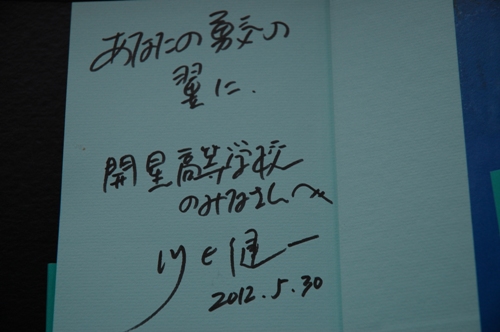 あなたの勇気の
翼に.
開星高等学校
のみなさんへ
川上健一
2012.5.30